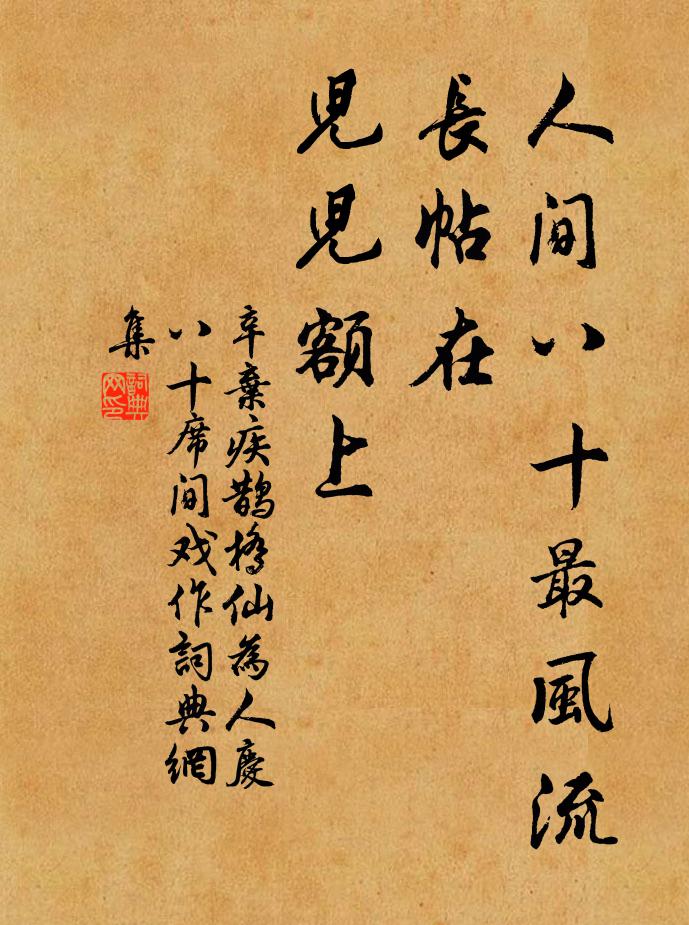 人间八十最風流
長帖在
児児額上
辛棄疾鹊橋仙為人慶
八十席间戏作詞典網
集
詞典網印